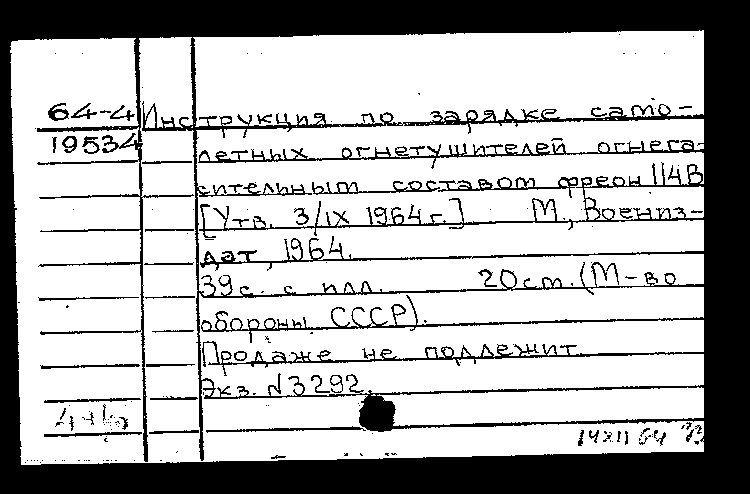 64-4 Инструкция по зарядке само-
19534 летных огнетушителей огнега-
сительным составом фреон 114В
[Утв. 3/IX 1964 г.] М., Воениз-
дат, 1964.
39 с. с илл. 20 ст. (М-во
обороны СССР).
Продаже не подлежит.
Экз. N 3292.
14 XII 64